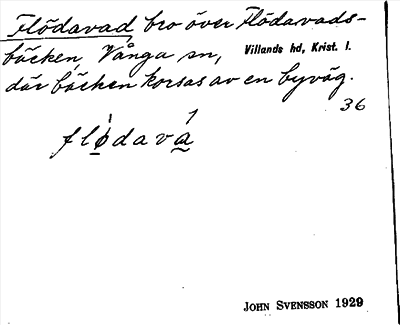 Flödavad bro över Flödavads-
bäcken, Vånga sn, Villands hd, Krist. l.
där bäcken korsas av en byväg.
36
flødava
JOHN SVENSSON 1929